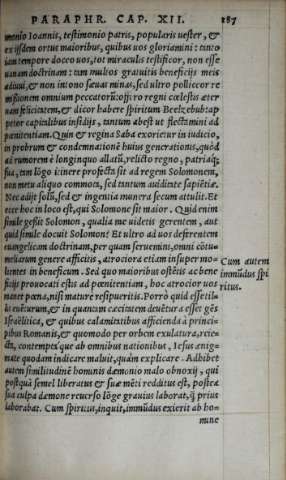 PARAPHR. CAP. XII. 187
monio Ioannis, testimonio patris, popularis uester, &
ex ijsdem ortus maioribus, quibus uos gloriamini: tanto
iam tempore doceo uos, tot miraculis testificor, non esse
uanam doctrinam: tam multos gratuitis beneficijs meis
adiuui, & non intono sæuas minas, sed ultro polliceor re
missionem omnium peccatorũ: offero regni cœlestis æter
nam felicitatem, & dicor habere spiritum Beelzebub: ap
petor capitalibus insidijs, tantum abest ut flectamini ad
pœnitentiam. Quin & regina Saba exorietur in iudicio,
in probrum & condemnationẽ huius generationis, quòd
ad rumorem è longinquo allatũ, relicto regno, patriaq;
sua, tam lõgo itinere profecta sit ad regem Solomonem,
non metu aliquo commota, sed tantum audiendæ sapiẽtiæ.
Nec adijt solũ, sed & ingentia munera secum attulit. Et
ecce hoc in loco est, qui Solomone sit maior. Quid enim
simile gessit Solomon, qualia me uidetis gerentem, aut
quid simile docuit Solomon? Et ultro ad uos deferentem
euangelicam doctrinam, per quam seruemini, omni cõtu-
meliarum genere afficitis, atrociora etiam insuper mo-
lientes in beneficum. Sed quo maioribus osteñsis ac bene
ficijs prouocati estis ad pœnitentiam, hoc atrocior uos
manet pœna, nisi mature resipueritis. Porrò quid esset il-
lis euẽturum, & in quantam cæcitatem deuẽtura esset gẽs
Israëlitica, & quibus calamitatibus afflicenda à princi-
pibus Romanis, & quomodo per orbem exulatura, reie-
cta, contemptáque ab omnibus nationibus, Iesus ænig-
mate quodam indicare maluit, quàm explicare. Adhibet
autem similitudinẽ hominis dæmonio malo obnoxij, qui
postquã semel liberatus & suæ mẽti redditus est, postea
sua culpa dæmone reuerso lõge grauius laborat, q̃ prius
laborabat. Cum spiritus, inquit, immũdus exierit ab ho-
mine
Cum autem
immũdus spi
ritus.